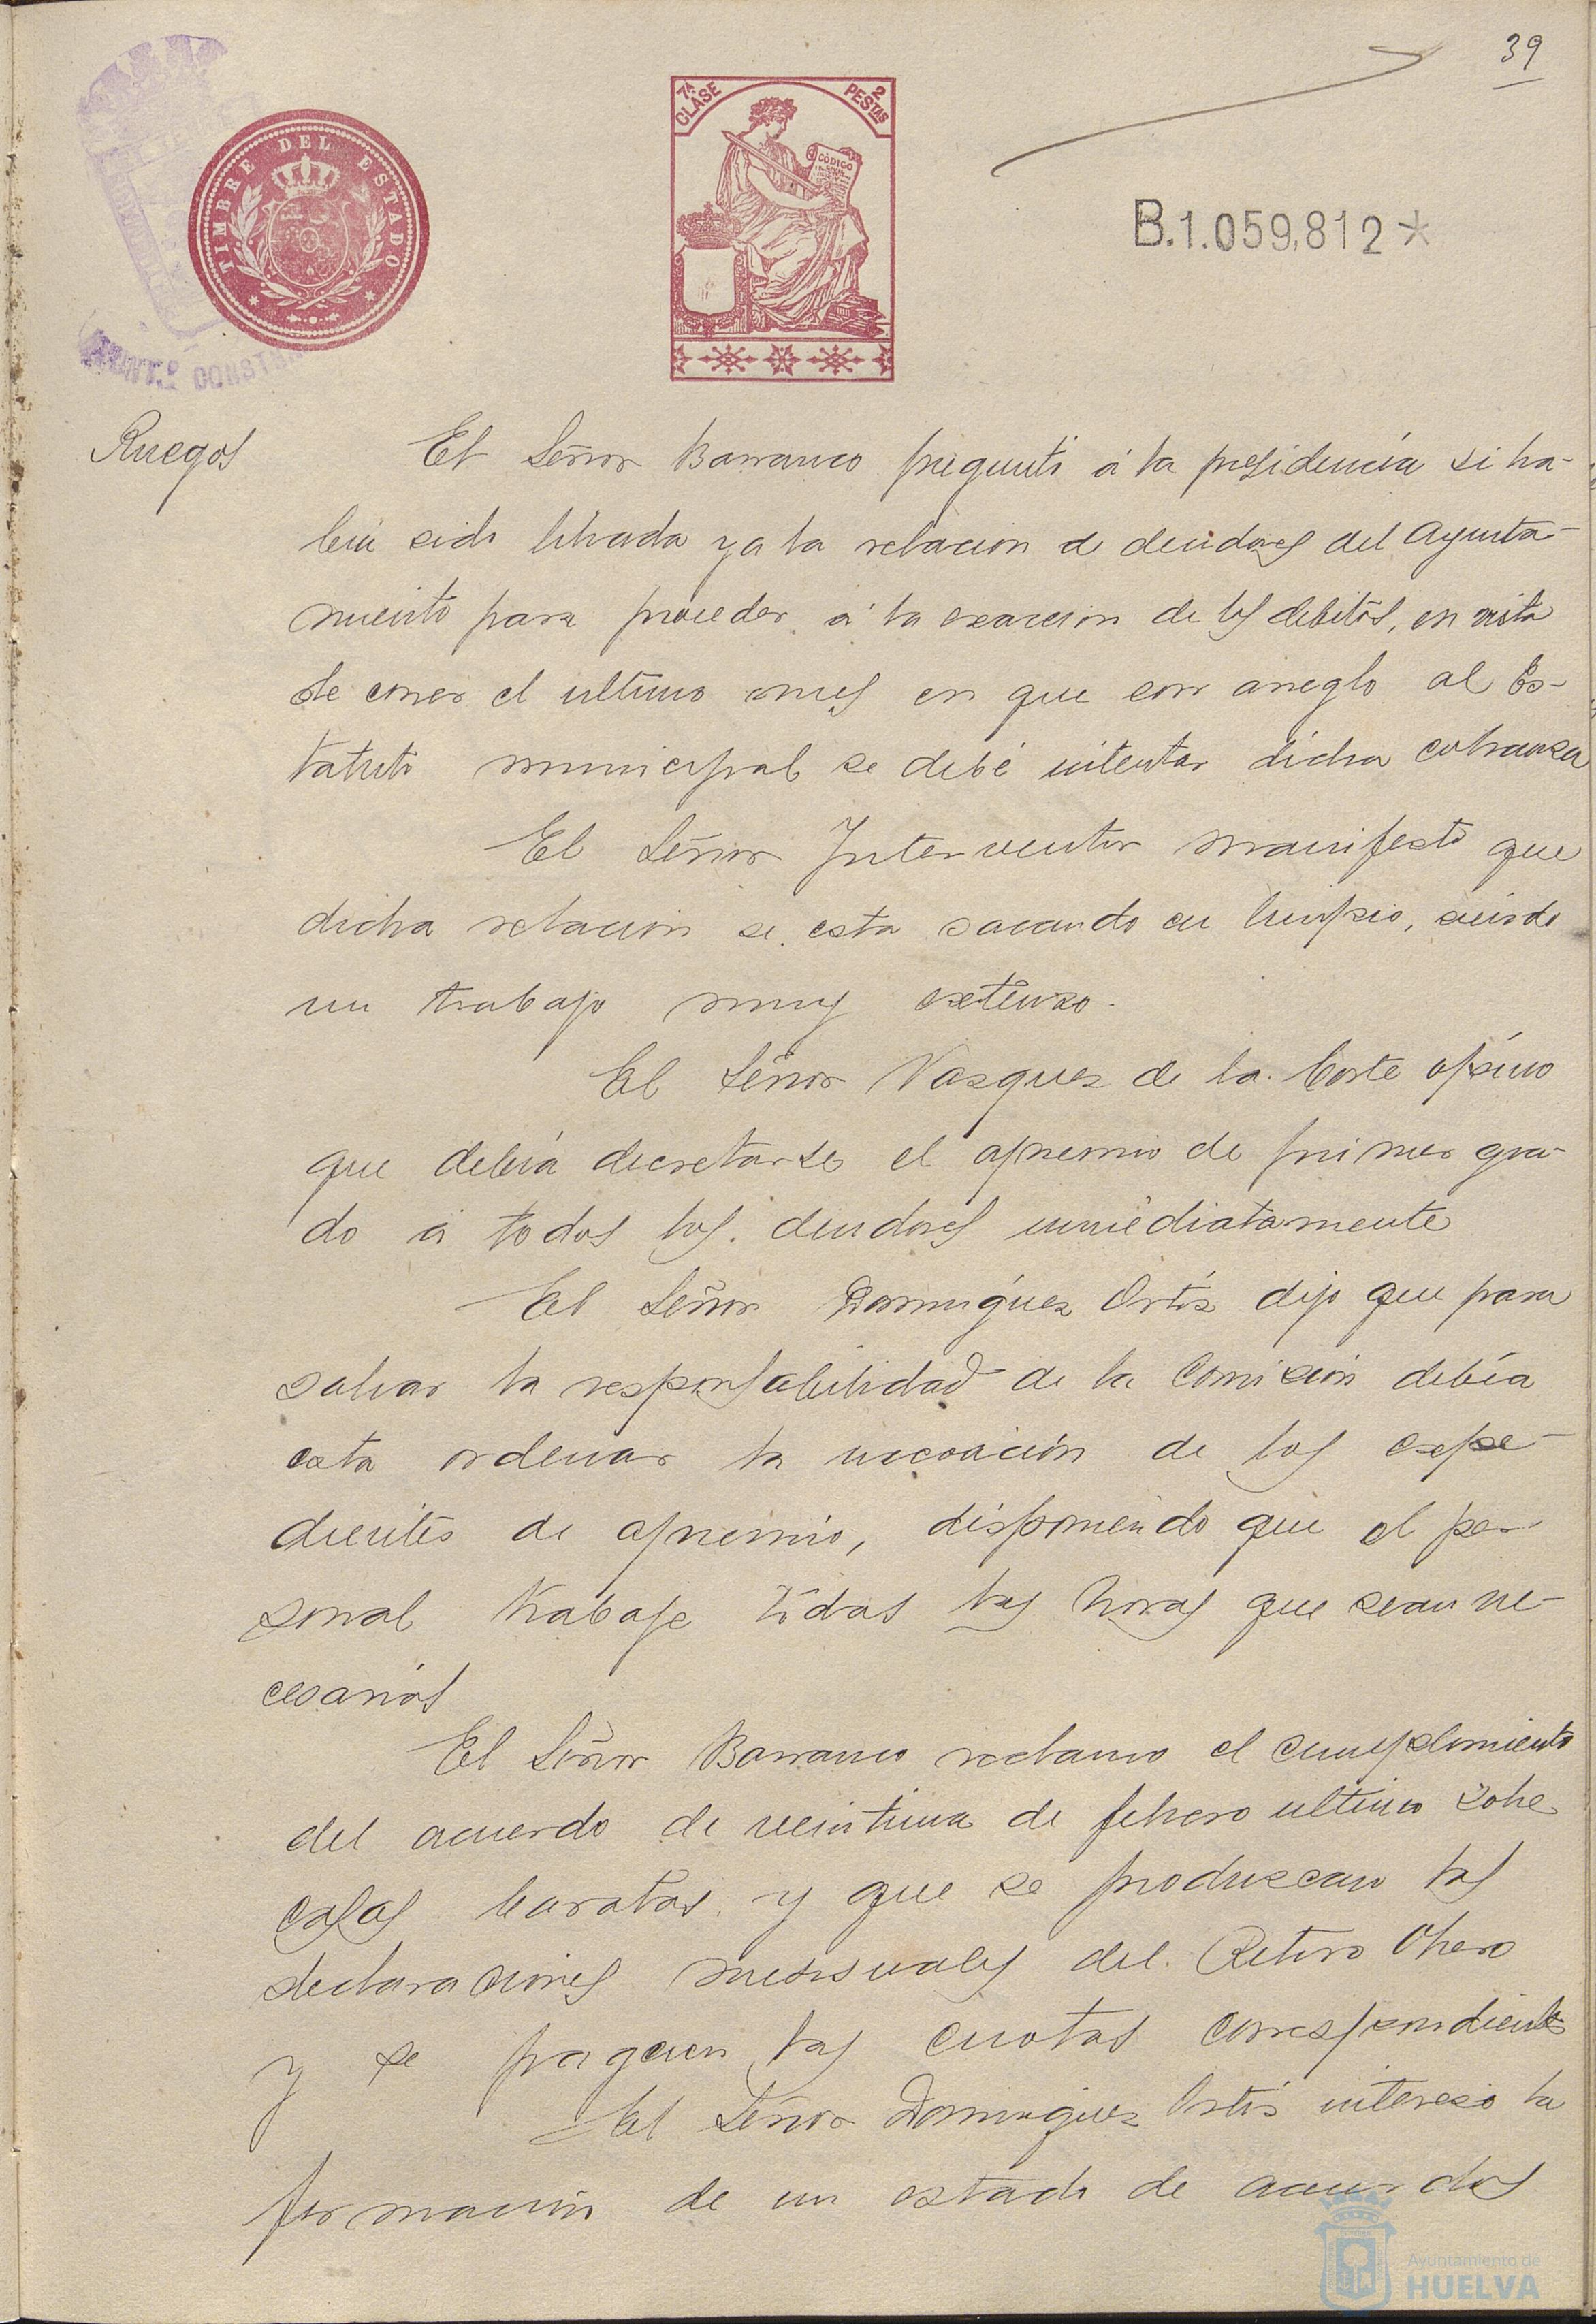 39
TIMBRE DEL ESTADO
7ª CLASE
2 PESTAS
CÓDIGO
B.1.059,812*
AYUNT.º CONST
Ruegos
El Señor Barranco preguntó á la presidencia si ha-
bía sido librada ya la relacion de deudores del Ayunta-
miento para proceder á la exaccion de los debitos, en vista
de correr el ultimo mes en que con arreglo al Es-
tatuto municipal se debe intentar dicha cobranza
El Señor Interventor manifesto que
dicha relacion se esta sacando en limpio, siendo
un trabajo muy extenso.
El Señor Vazquez de la Corte opino
que debía decretarse el apremio de primer gra-
do á todos los deudores inmediatamente
El Señor Dominguez Ortiz dijo que para
salvar la responsabilidad de la Comisión debía
esta ordenar la incoación de los expe-
dientes de apremio, disponiendo que el per-
sonal trabaje todas las horas que sean ne-
cesarias
El Señor Barranco reclamo el cumplimiento
del acuerdo de veintiuna de febrero ultimo sobre
casas baratas y que se produzcan las
declaraciones mensuales del Retiro Obrero
y se paguen las cuotas correspondientes
El Señor Dominguez Ortiz intereso la
formación de un estado de acuerdos
Ayuntamiento de
HUELVA